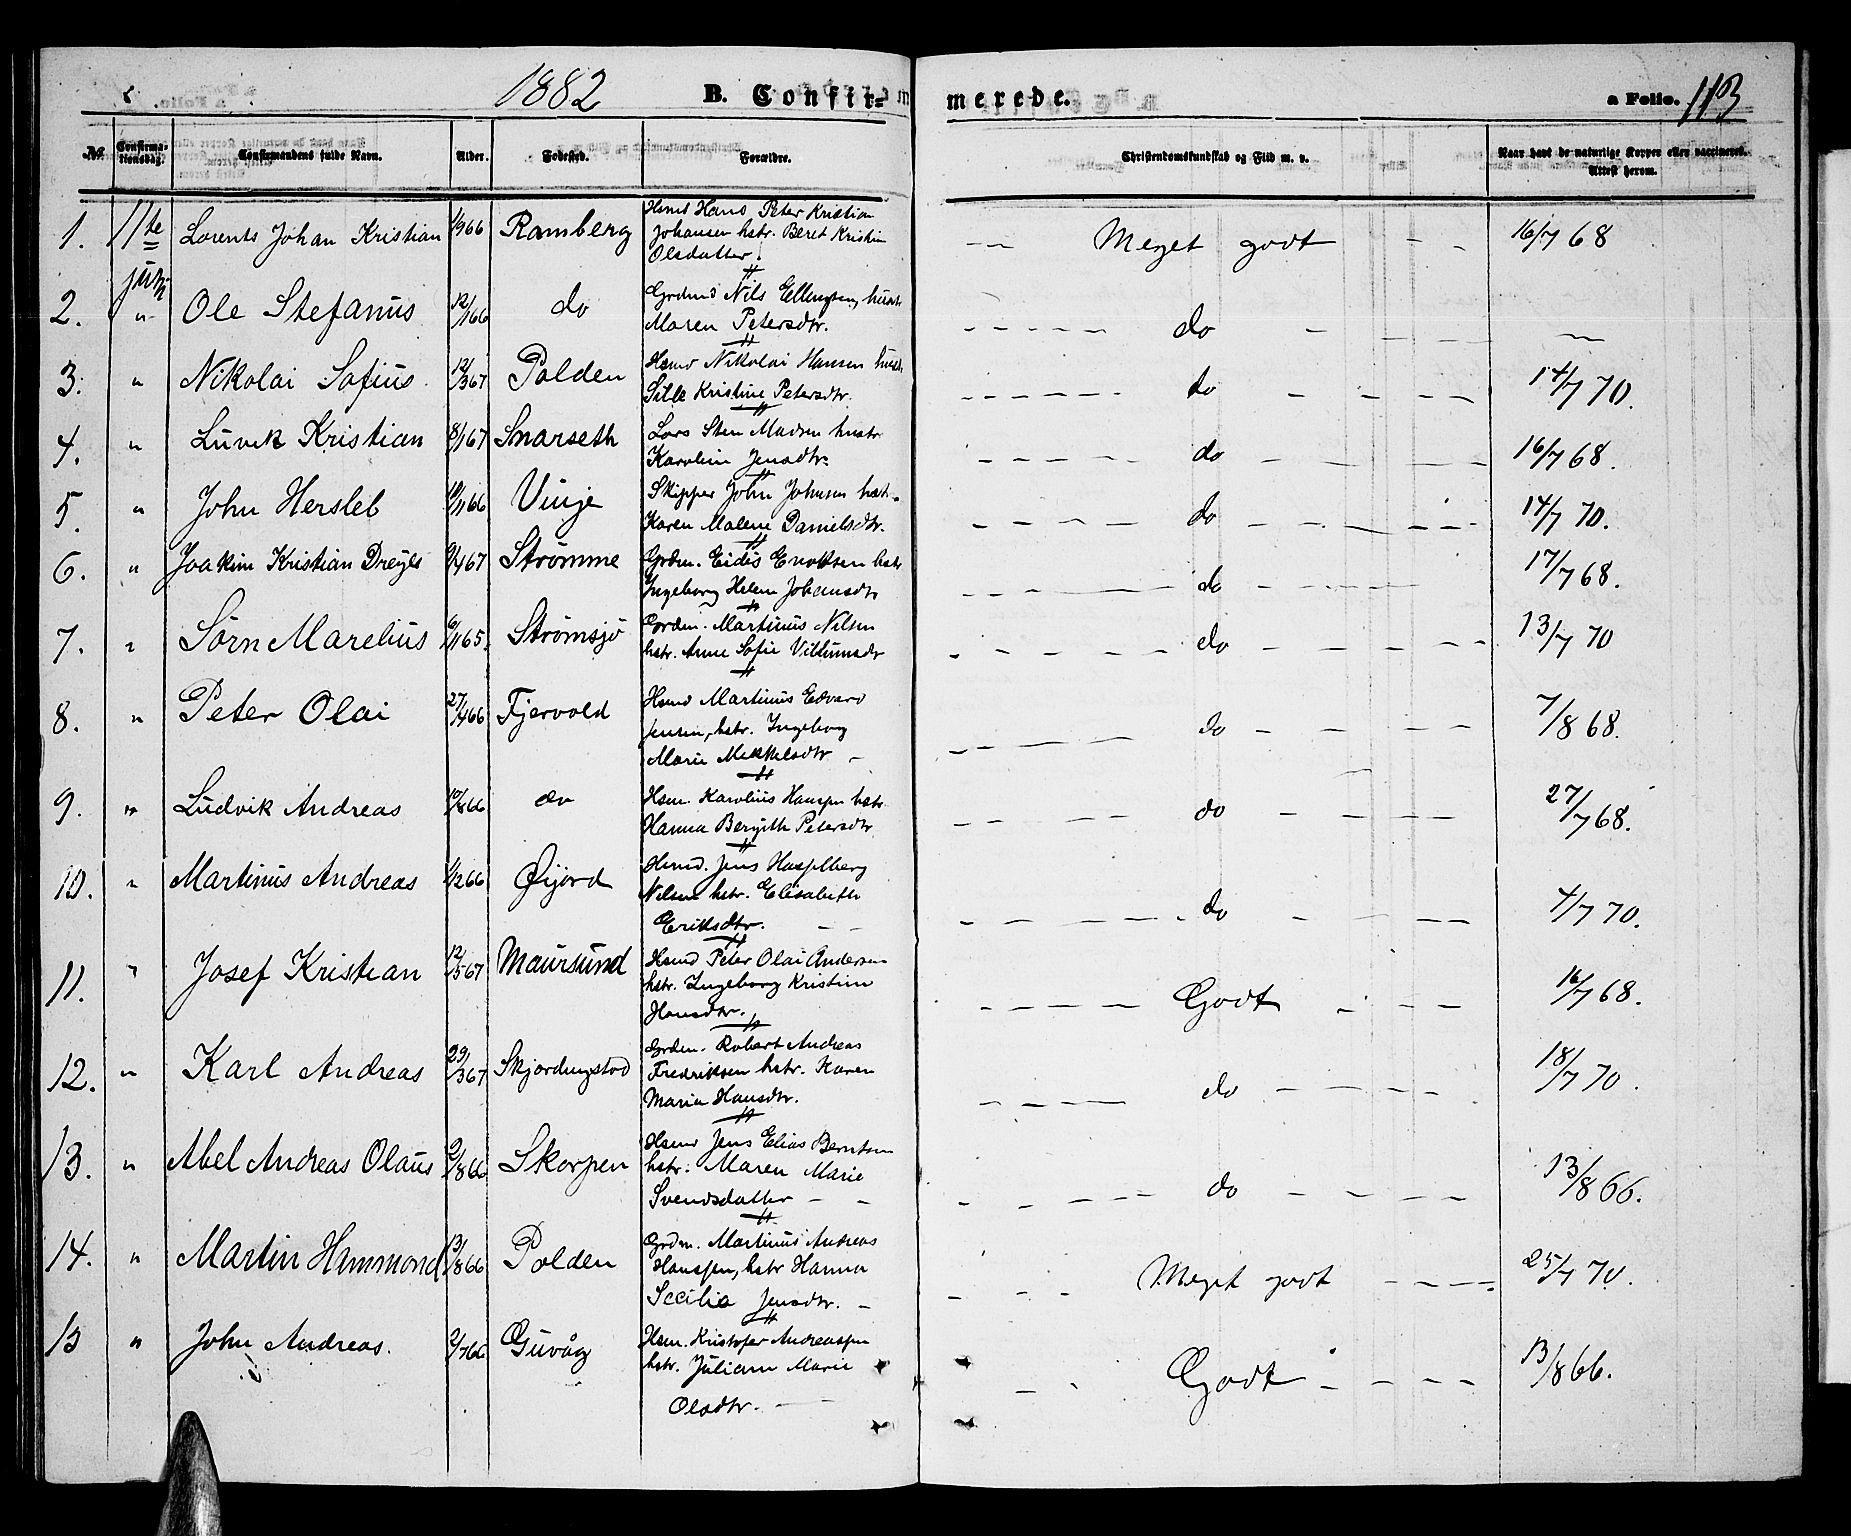 1882 B. Confir- merede. a Folio. 113
No. Confirma- tionsdag. Confirmandens fulde Navn. Alder. Fødested. Forældre. Christendomskundskab og Flid m. v. Naar havt de naturlige Kopper eller vaccineret.
Attest herom.
1. 11te Lorents Johan Kristian 1/966 Ramberg Hsmd Hans Peter Kristian
Johansen hstr. Beret Kristin
Olsdatter. - - Meget godt - - 16/7 68
juni
2. " Ole Stefanus 12/166 do Grdmd Nils Ellingsen, hustr
Maren Petersdtr. do
3. " Nikolai Sofius. 12/367 Polden Hsmd Nikolai Hansen hustr.
Sille Kristine Petersdtr. do 14/7 70.
4. " Luvik Kristian 8/167 Snarseth Lars Sten Madsen hustr
Karolin Jensdtr. do 16/7 68.
5. " John Hersleb 10/166 Vinje Skipper John Johnsen hstr.
Karen Malene Danielsdtr. do 14/7 70.
6. " Joakim Kristian Dreyer 9/467 Strømme Grdm. Eidis Enoksen hstr
Ingeborg Helene Johansdtr do 17/7 68.
7. " Sørn Marelius 65. Strømsjø Gordm. Martinus Nilsen
hstr. Anne Sofie Villumsdr do 13/7 70
8. " Peter Olai 27/466 Fjervold Hsmd Martinus Edvard
Jensen, hstr. Ingeborg
Marie Mekkelsdtr - do 7/8 68.
9. " Ludvik Andreas 10/866 do Hsm. Karolius Hanssen hstr
Hanna Bergith Petersdtr do 27/7 68.
10. " Martinus Andreas 1/266 Øijord Hsmd. Jens Hasselberg
Nilsen hstr. Elisabeth
Eriksdtr. - - do 4/7 70.
11. " Josef Kristian 12/567 Maursund Hsmd Peter Olai Andersen
hstr. Ingeborg Kristine
Hansdtr. Godt 16/7 68.
12. " Karl Andreas 29/367 Skjordingstad Grdm. Robert Andreas
Fredriksen hstr. Karen
Maria Hansdtr. do 18/7 70.
13. " Abel Andreas Olaus 2/866 Skorpen Hsmd Jens Elias Berntsen
hstr. Maren Marie
Svendsdatter - - do 13/8 66.
14. " Martin Hammond 13/866 Polden Grdm. Martinus Andreas
Hanssen, hstr Hanna
Secilia Jensdtr. - Meget godt 25/7 70.
15 " John Andreas. 2/766 Guvåg Hsm. Kristofer Andreassen
hstr. Juliane Marie
Olsdtr. - Godt 13/8 66.